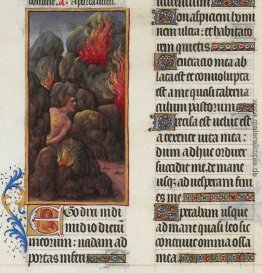 Ego dixi in di
midio dierum
meorum: uadam ad
portas inferi
Non aspiciam homi
nem ultra: et habitato
rem quietis
Generatio mea ab
lata est et conuoluta
est a me quasi taberna
culum pastorum
Precisa est uelut a
terente uita mea:
dum adhuc ordirer
succidit me: de mane
usq; ad uesperam fini
es me
Sperabam usque
ad mane quasi leo sic
contriuit omnia ossa
mea